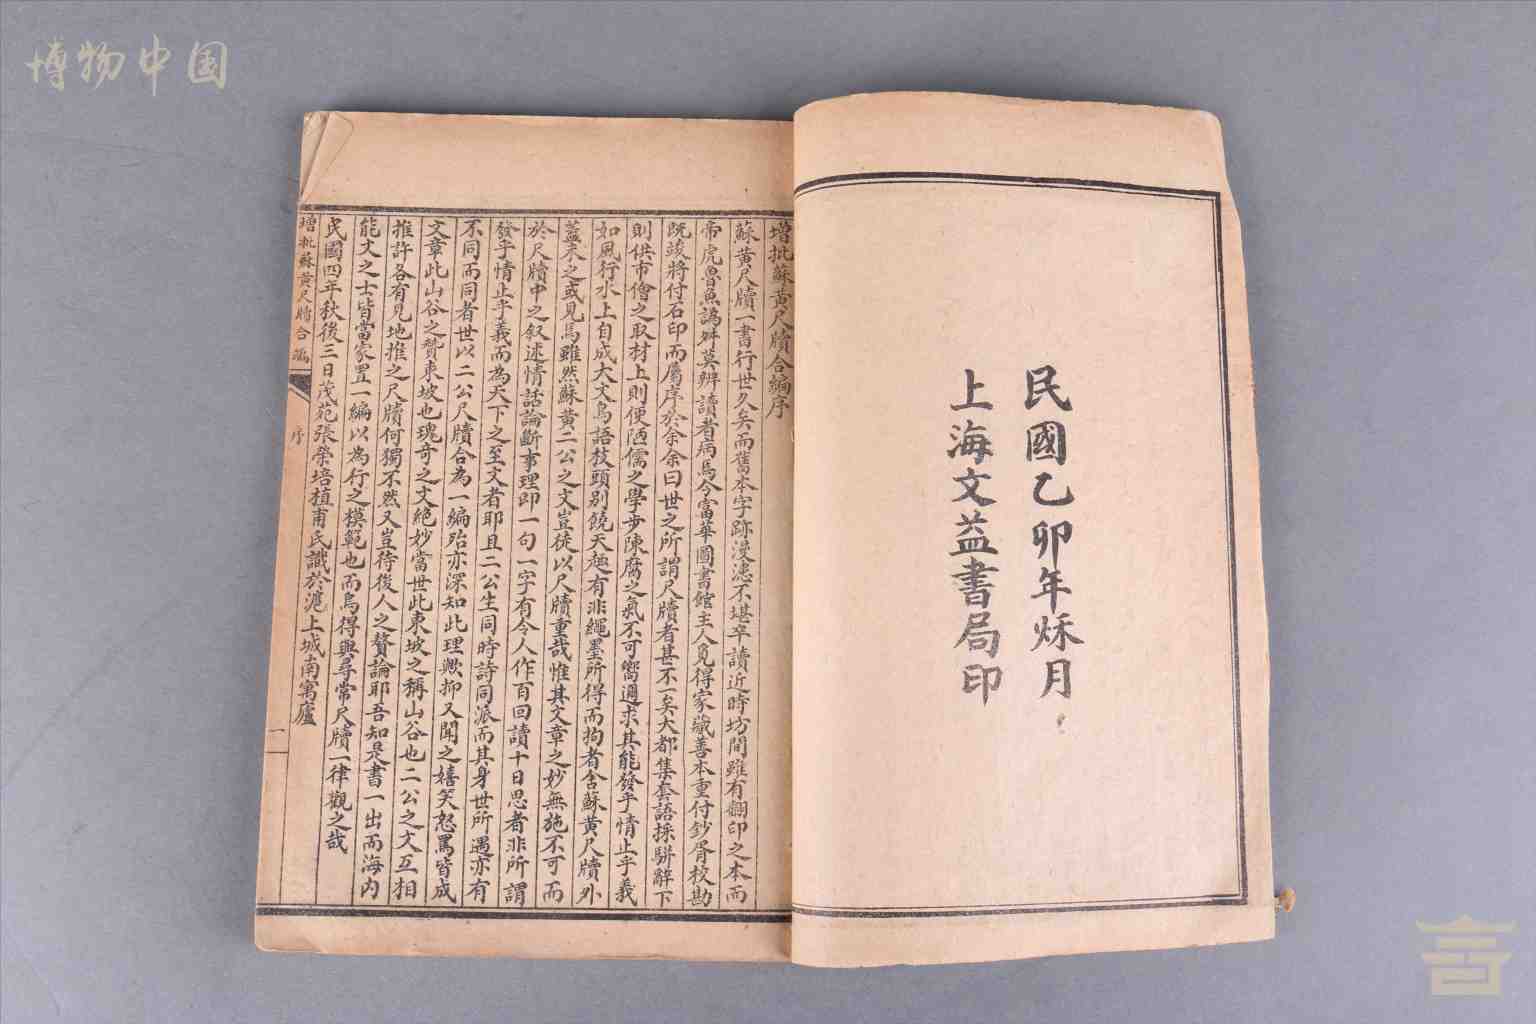 博物中国
民國乙卯年秌月
上海文益書局印
增批蘇黃尺牘合編序
蘇黃尺牘一書行世久矣而舊本字跡漫漶不堪卒讀近時坊間雖有翻印之本而
帝虎魯魚譌舛莫辨讀者病焉今富華圖書館主人覓得家藏善本重付鈔胥校勘
既竣將付石印而屬序於余余曰世之所謂尺牘者甚不一矣大都集套語採駢辭下
則供市儈之取材上則便陋儒之學步陳腐之氣不可嚮邇求其能發乎情止乎義
如風行水上自成大文鳥語枝頭別饒天趣有非繩墨所得而拘者舍蘇黃尺牘外
蓋未之或見焉雖然蘇黃二公之文豈徒以尺牘重哉惟其文章之妙無施不可而
於尺牘中之叙述情話論斷事理即一句一字有令人作百回讀十日思者非所謂
發乎情止乎義而為天下之至文者耶且二公生同時詩同派而其身世所遇亦有
不同而同者世以二公尺牘合為一編殆亦深知此理歟抑又聞之嬉笑怒罵皆成
文章此山谷之贊東坡也瑰奇之文絕妙當世此東坡之稱山谷也二公之文互相
推許各有見地推之尺牘何獨不然又豈待後人之贅論耶吾知是書一出而海內
能文之士皆當家置一編以為行之模範也而烏得與尋常尺牘一律觀之哉
民國四年秋後三日茂苑張榮培植甫氏識於滬上城南寓廬
增批蘇黃尺牘合編
序
一